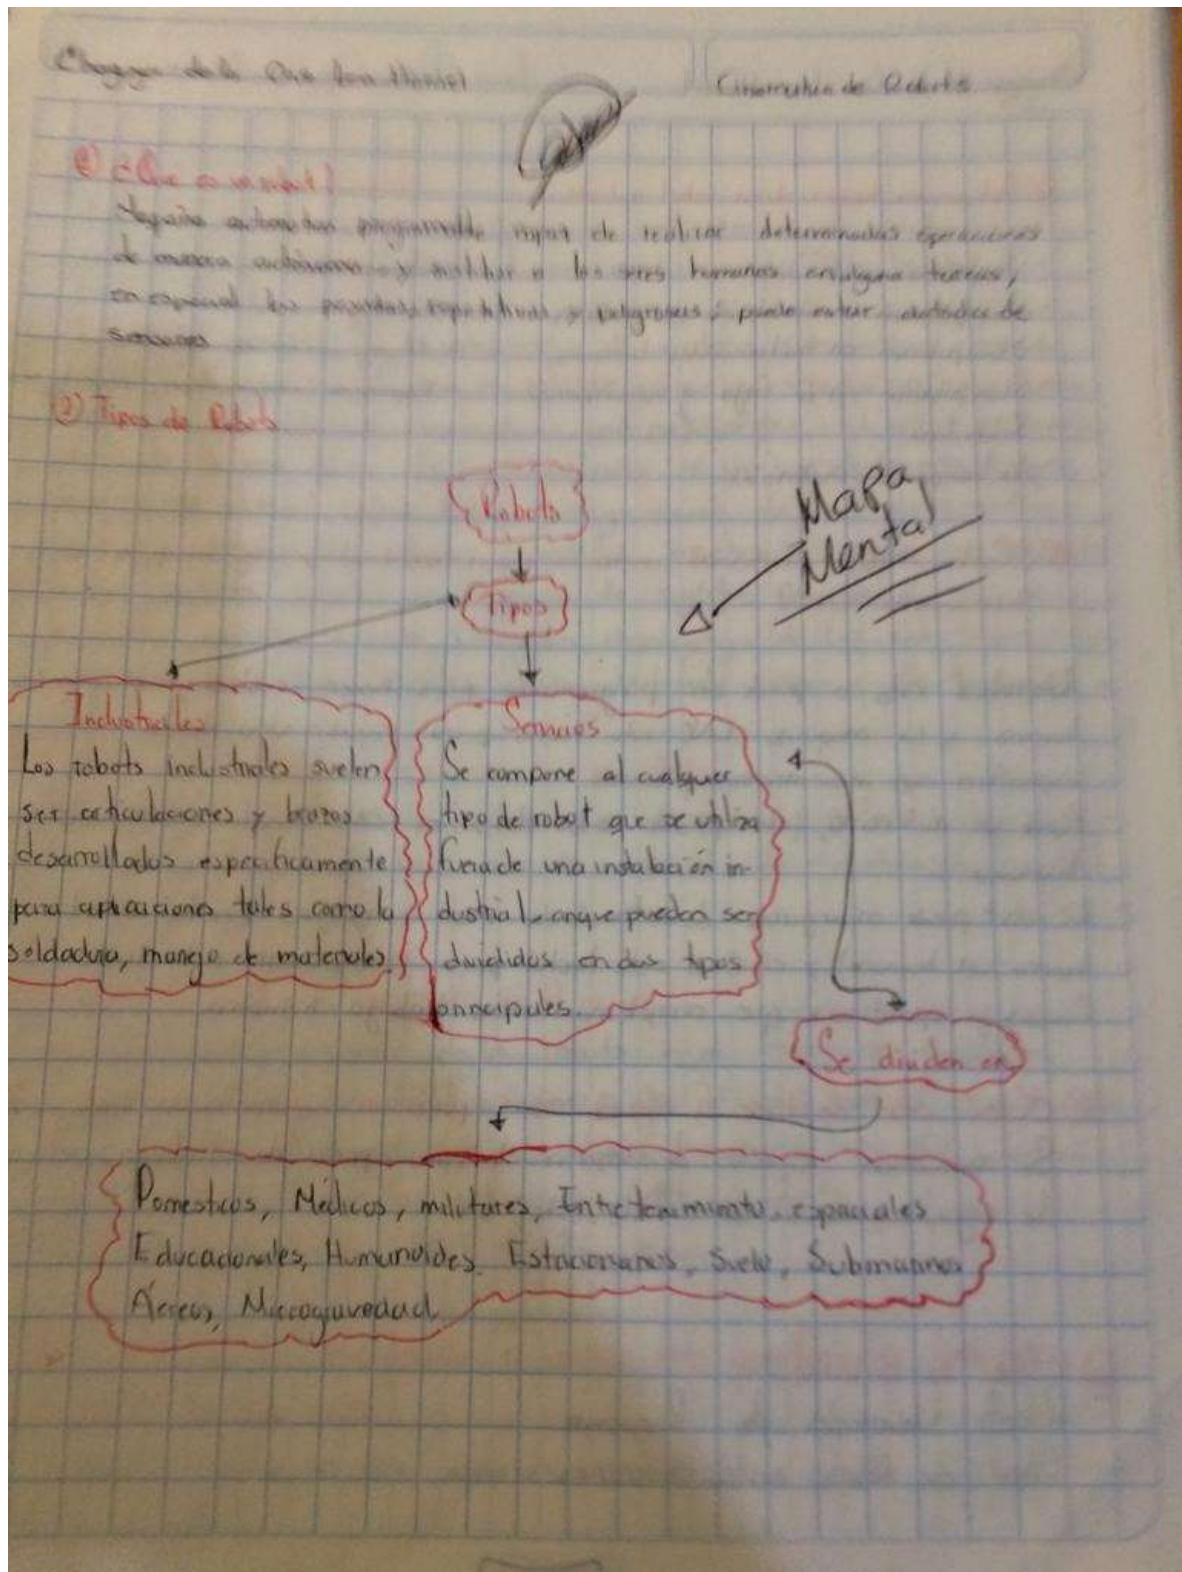 de la Cruz
Cinematica de Robots
1) ¿Que es un robot?
programable capaz de realizar determinadas operaciones
de manera autónoma y sustituir a los seres humanos en alguna tareas,
en especial las pesadas, repetitivas y peligrosas; puede estar dotado de
sensores
2) Tipos de Robots
Robots
Mapa
Mental
Tipos
Industriales
Los robots industriales suelen
ser articulaciones y brazos
desarrollados especificamente
para aplicaciones tales como la
soldadura, manejo de materiales.
Se compone al cualquier
tipo de robot que se utiliza
fuera de una instalación in-
dustrial, anque pueden ser
divididos en dos tipos
principales.
Se dividen en
Domesticos, Médicos, militares, Entretenimiento, espaciales
Educacionales, Humanoides, Estacionarios, Suelo, Submarinos
Áereos, Microgravedad